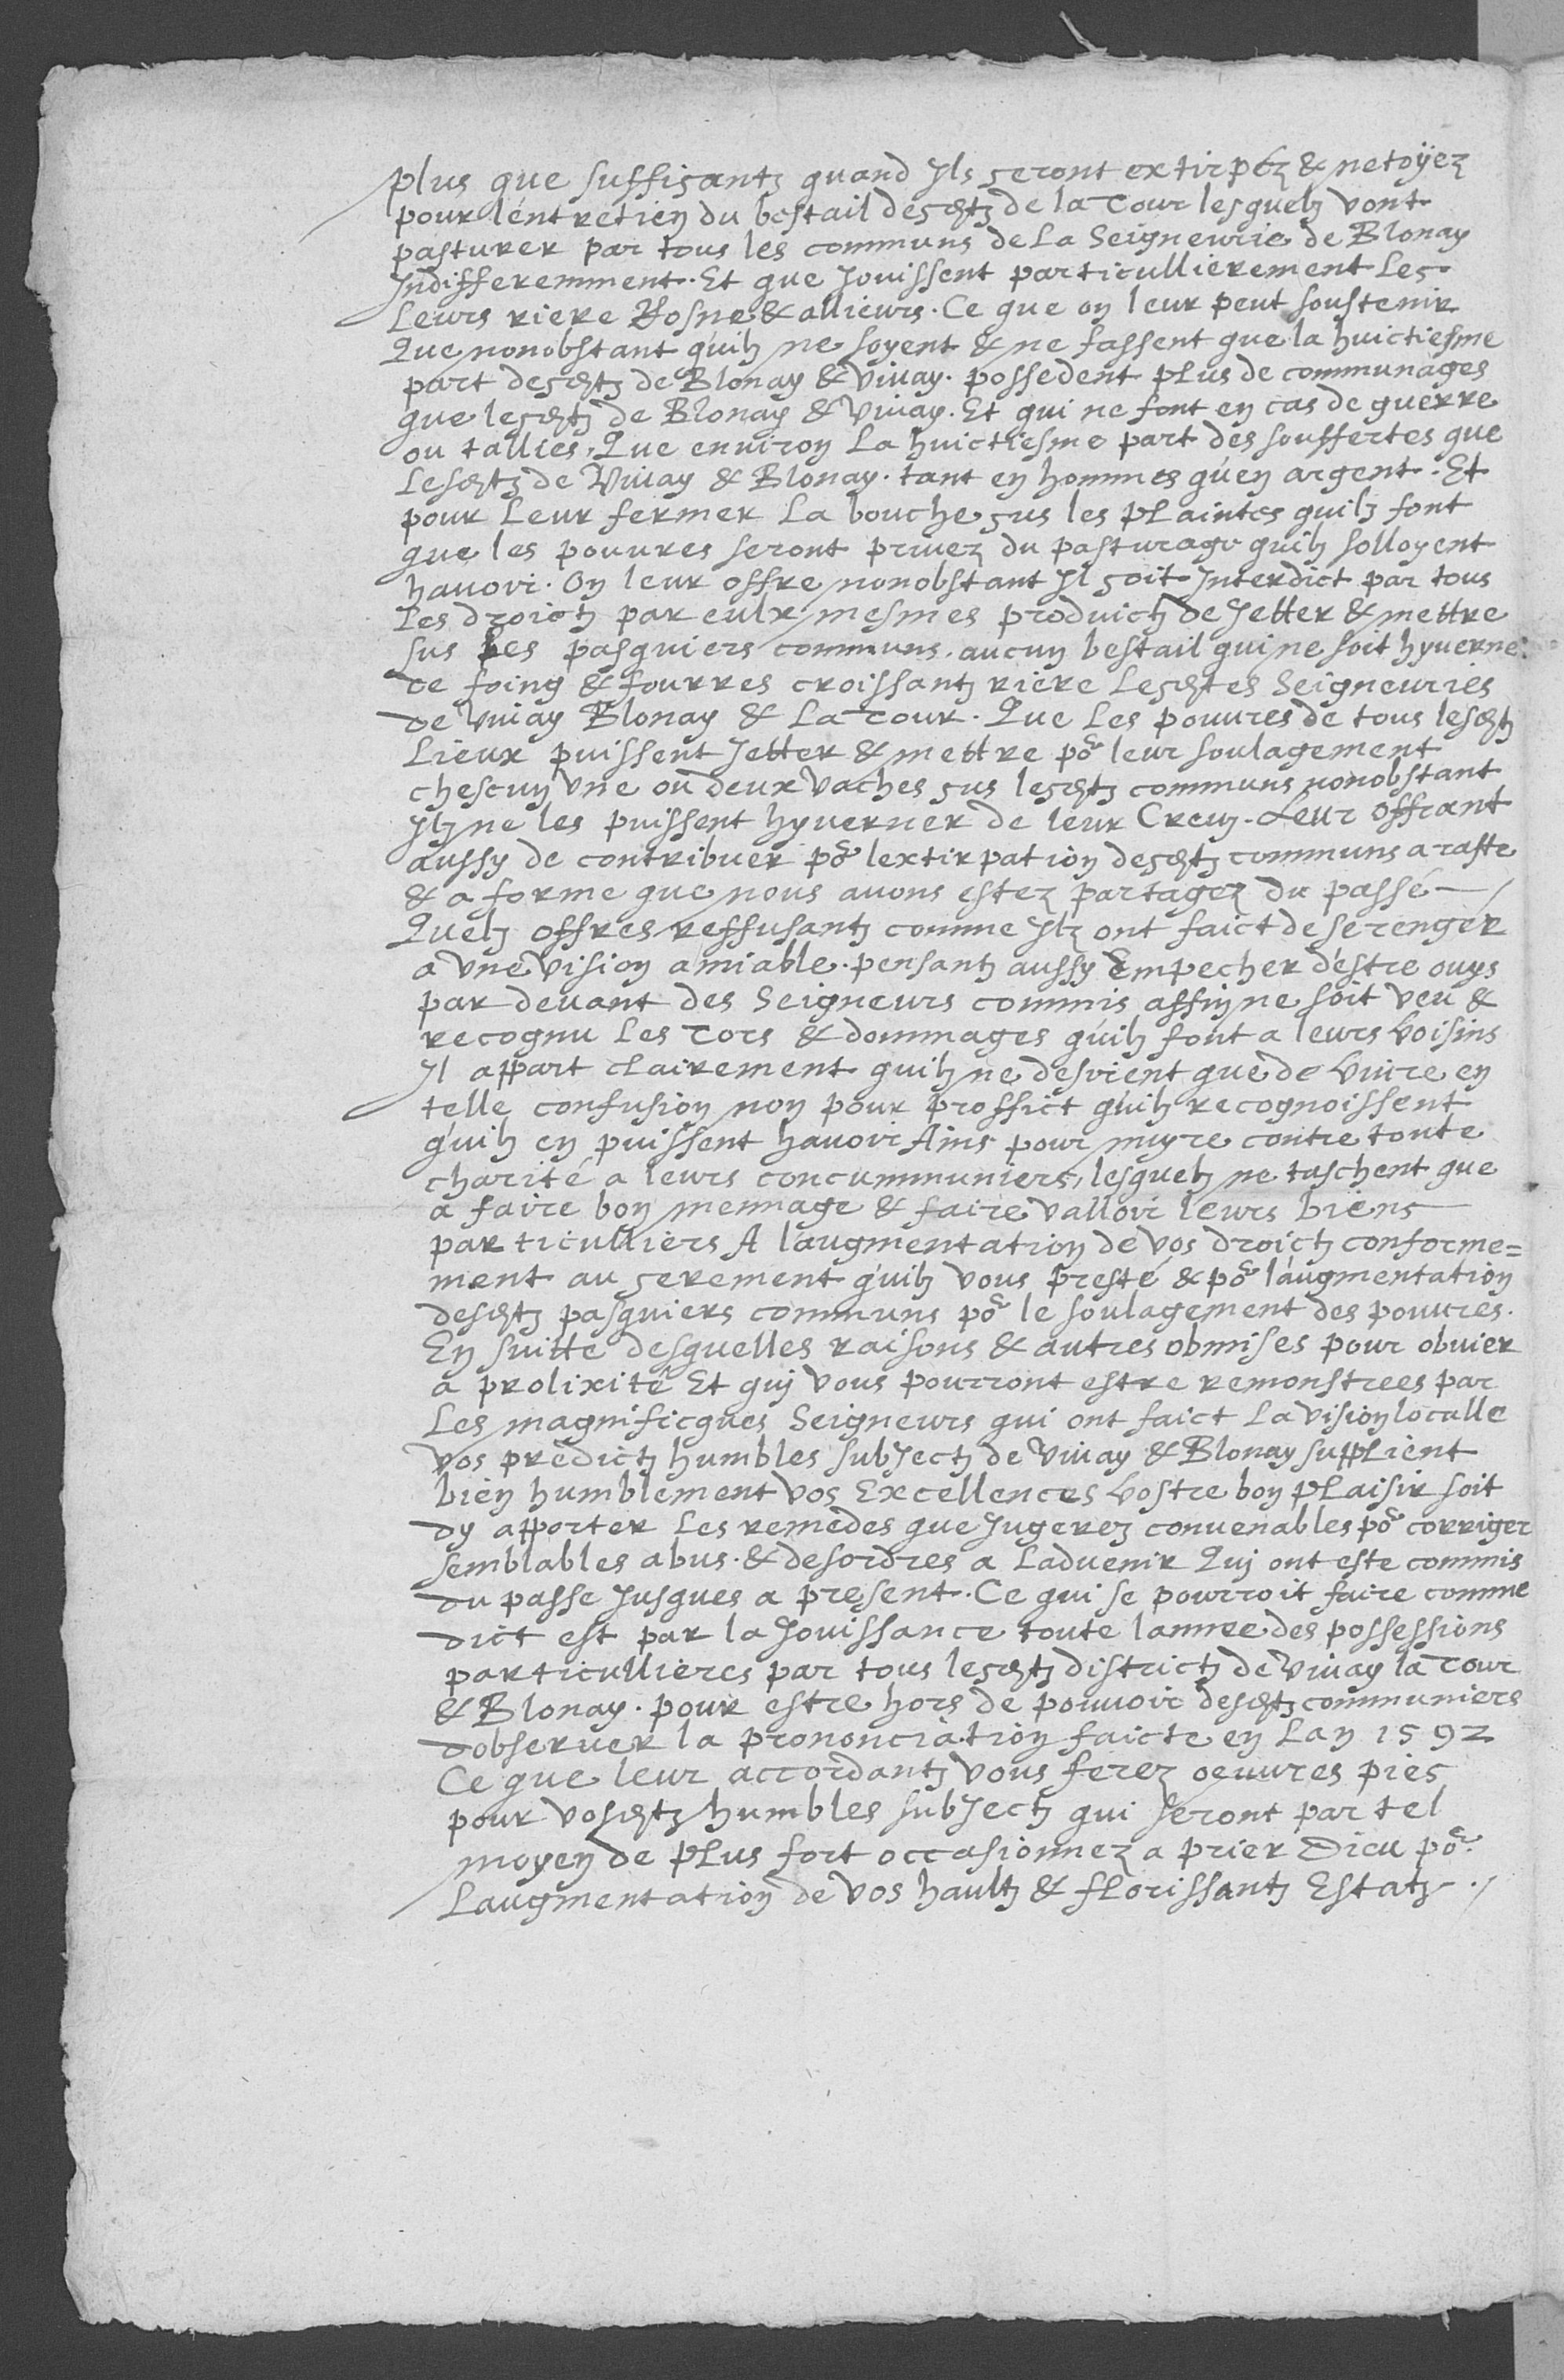 plus que suffisantz quand Ils seront extirpéz & netoÿez
pour léntretien du bestail desdtz de la Tour lesquelz vont
pasturer par tous les communs de la Seigneurie de Blonay
Indifferemment. Et que Jouissent particullierement les
Leurs riere Rosne & allieurs. Ce que on leur peut soustenir
Que nonobstant quilz ne soyent & ne fassent que la huictiesme
part desdtz de Blonay & Vivay. possedent plus de communages
que lesdtz de Blonay & Vivay. Et qui ne font en cas de guerre
ou tallies, Que environ la huictiesme part des souffertes que
Lesdtz de Vivay & Blonay. tant en hommes quen argent. Et
pour Leur fermer La bouche sus les plaintes quilz font
que les pouures seront priuez du pasturage quilz solloyent
hauoir. On leur offre nonobstant Il soit Interdict par tous
les droictz par eulx mesmes produictz de Jetter & mettre
sus les pasquiers communs. aucun bestail qui ne soit hyuerne
de foing & fourres croissantz riere Lesdtes Seigneuries
de Vivay Blonay & La Tour. Que Les pouures de tous lesdtz
Lieux puissent Jetter & mettre por leur soulagement
chescun vne ou deux vaches sus lesdtz communs nonobstant
Ilz ne les puissent hyuerner de leur Creuz. Leur offrant
aussy de contribuer por lextirpation desdtz communs a ratte
& a forme que nous auons estez partagez du passé
Quelz offres reffusantz comme Ilz ont faict de se renger
a vne vision amiable. pensantz aussy Empecher déstre ouys
par deuant des Seigneurs commis affin ne soit veu &
recognu les Tors & dommages quilz font a leurs voisins
Il appart clairement quilz ne desirent que de viure en
telle confusion non pour proffict quilz recognoissent
quilz en puissent hauoir Ains pour nuyre contre toute
charité a leurs concummuniers, lesquelz ne taschent que
a faire bon mennage & faire valloir leurs biens
particulliers A laugmentation de vos droictz conforme=
ment au serement quilz vous presté & por láugmentation
desdtz pasquiers communs por le soulagement des pouures.
En suitte desquelles raisons & autres obmises pour obuier
a prolixité Et qui vous pourront estre remonstrees par
Les magnificques Seigneurs qui ont faict La vision localle
vos predictz humbles subJectz de Vivay & Blonay supplient
bien humblement vos Excellences vostre bon plaisir soit
dy apporter les remedes que Jugerez convenables por corriger
semblables abus. & desordres a Laduenir Qui ont este commis
du passe Jusques a present. Ce qui se pourroit faire comme
dict est par la Jouissance toute lannee des possessions
particullieres par tous lesdtz districtz de Vivay la Tour
& Blonay. pour estre hors de pouuoir desdtz communiers
dobseruer la prononciation faicte en Lan 1592
Ce que leur accordantz vous ferez oeuures pies
pour vosdtz humbles subJectz qui seront par tel
moyen de plus fort occasionnez a prier Dieu por
Laugmentation de vos haultz & florissantz Estatz.